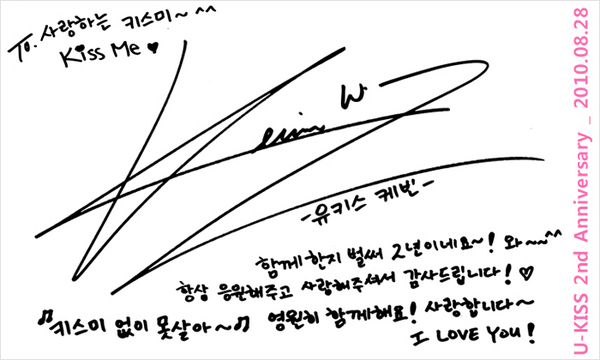 To. 사랑하는 키스미~ ^^
Kiss Me ♥
Kevin W
-유키스 케빈-
함께한지 벌써 2년이네요~! 와~~^^
항상 응원해주고 사랑해주셔서 감사드립니다! ♡
♫키스미 없이 못살아~♫ 영원히 함께해요! 사랑합니다~
I LOVE YOU!
U-KISS 2nd Anniversary _ 2010.08.28